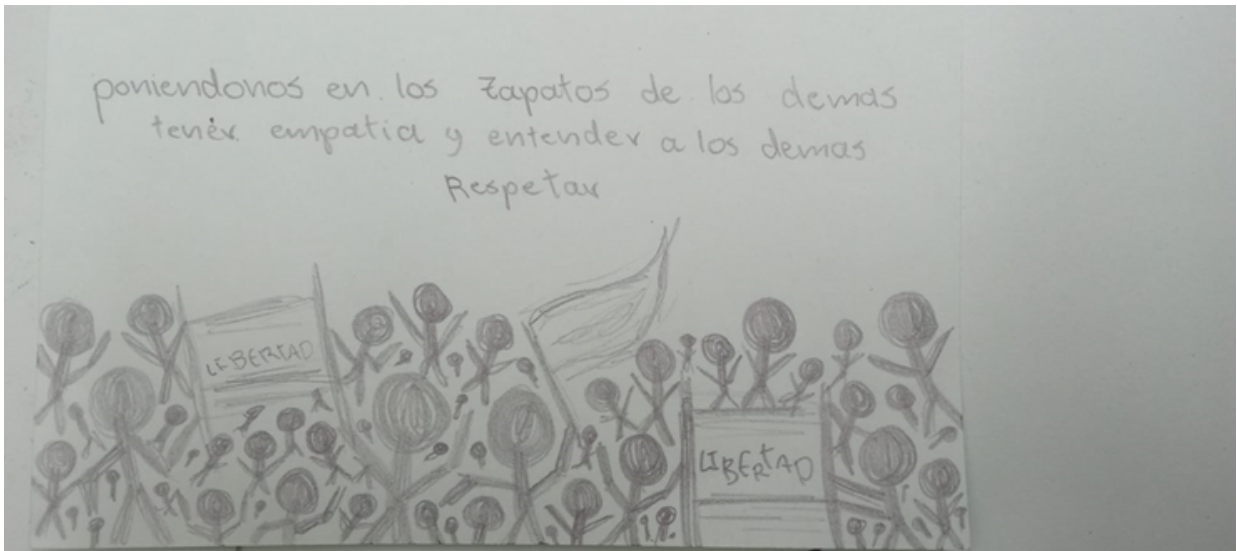 poniendonos en los zapatos de los demas
tener empatia y entender a los demas
Respetar
LIBERTAD
LIBERTAD